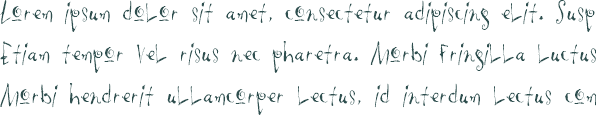 Lorem ipsum dolor sit amet, consectetur adipiscing elit. Susp
Etiam tempor vel risus nec pharetra. Morbi fringilla luctus
Morbi hendrerit ullamcorper lectus, id interdum lectus con